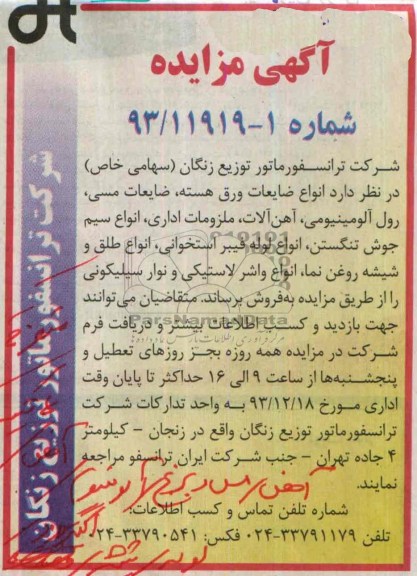 آگهی مزایده
شماره ۱-۹۳/۱۱۹۱۹
شرکت ترانسفورماتور توزیع زنگان (سهامی خاص)
در نظر دارد انواع ضایعات ورق هسته، ضایعات مسی،
رول آلومینیومی، آهن‌آلات، ملزومات اداری، انواع سیم
جوش تنگستن، انواع لوله فیبر استخوانی، انواع طلق و
شیشه روغن نما، انواع واشر لاستیکی و نوار سیلیکونی
را از طریق مزایده به‌فروش برساند. متقاضیان می‌توانند
جهت بازدید و کسب اطلاعات بیشتر و دریافت فرم
شرکت در مزایده همه روزه بجز روزهای تعطیل و
پنجشنبه‌ها از ساعت ۹ الی ۱۶ حداکثر تا پایان وقت
اداری مورخ ۹۳/۱۲/۱۸ به واحد تدارکات شرکت
ترانسفورماتور توزیع زنگان واقع در زنجان – کیلومتر
۴ جاده تهران – جنب شرکت ایران ترانسفو مراجعه
نمایند.
شماره تلفن تماس و کسب اطلاعات:
تلفن ۳۳۷۹۱۱۷۹-۰۲۴ فکس: ۳۳۷۹۰۵۴۱-۰۲۴
شرکت ترانسفورماتور توزیع زنگان
ParsNamadData